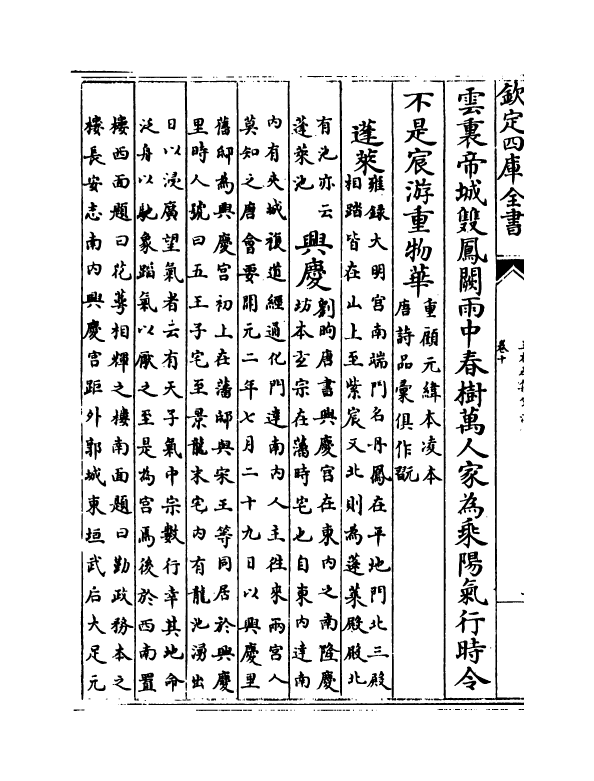 欽定四庫全書
卷十
雲裏帝城雙鳳闕雨中春樹萬人家為乘陽氣行時令
不是宸游重物華
重顧元緯本凌本
唐詩品彙俱作翫
蓬萊
雍錄大明宮南端門名丹鳳在平地門北三殿
相踏皆在山上至紫宸又北則為蓬萊殿殿北
有池亦云
蓬萊池
興慶
劉昫唐書興慶宮在東内之南隆慶
坊本玄宗在藩時宅也自東内達南
内有夾城複道經通化門達南内人主往來兩宮人
莫知之唐會要開元二年七月二十九日以興慶里
舊邸為興慶宮初上在藩邸與宋王等同居於興慶
里時人號曰五王子宅至景龍末宅内有龍池湧出
日以浸廣望氣者云有天子氣中宗數行幸其地命
泛舟以馳象蹈氣以厭之至是為宮焉後於西南置
樓西面題曰花萼相輝之樓南面題曰勤政務本之
樓長安志南内興慶宮距外郭城東垣武后大足元